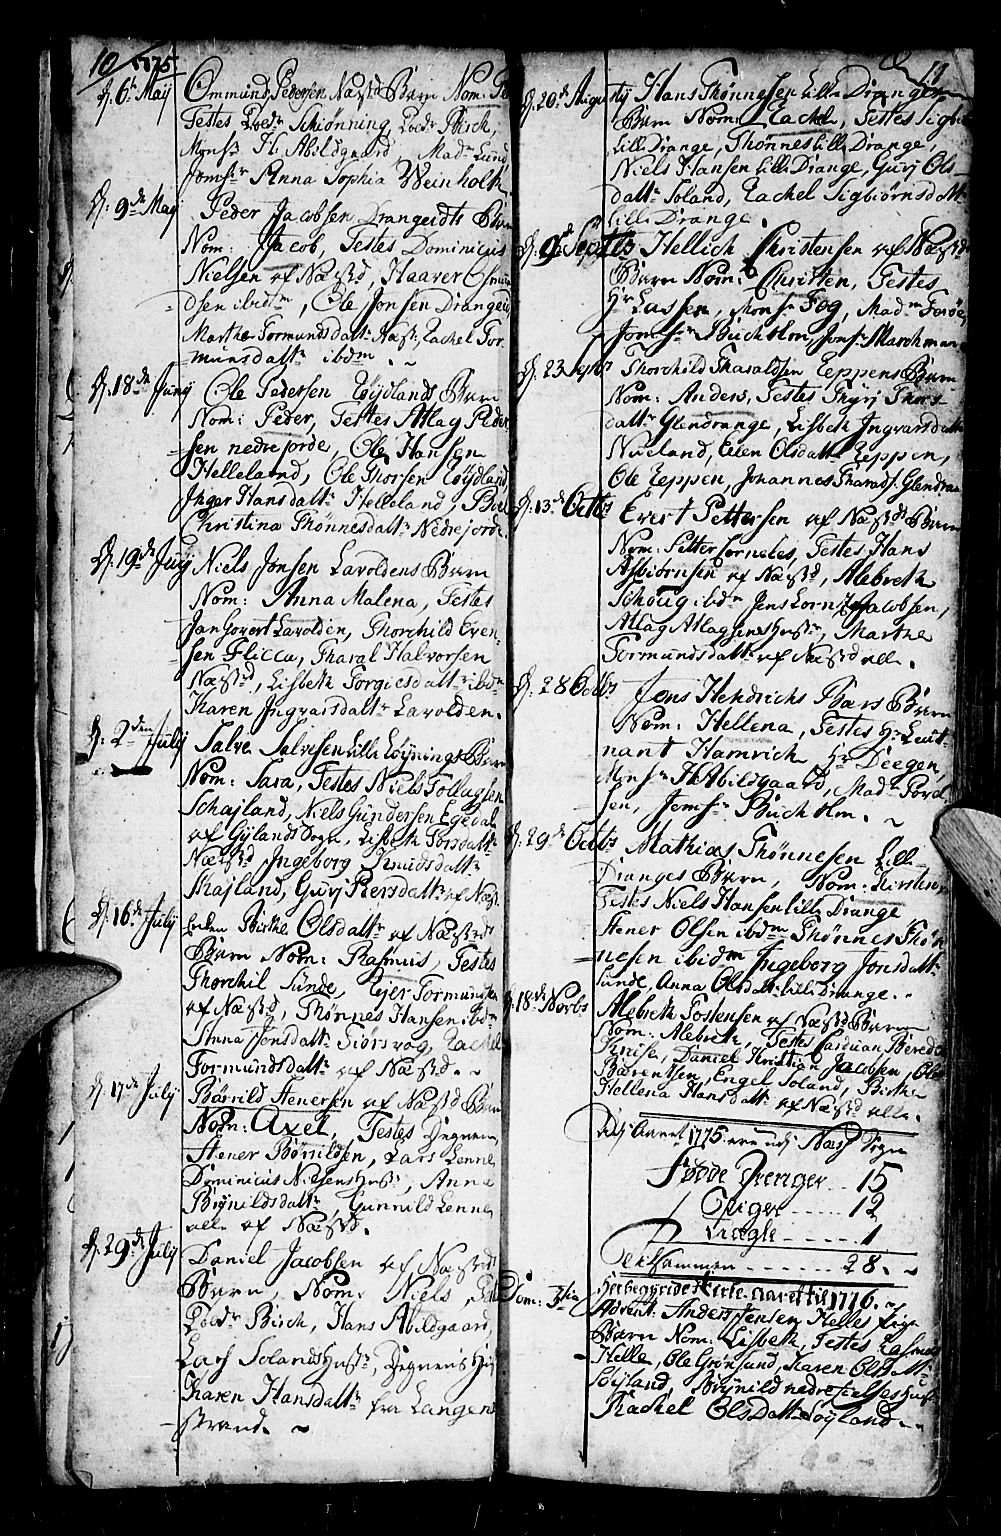 10 1775.
D. 6te Maij Ommund Pedersøn Næstd Barn Nom: Pe
Testes Schiønning, Birch,
Monsr H: Abildgaard, Madm Lund,
Jomfr Anna Sophia Weinholt
D. 9de Maj Peder Jacobsen Drangeidts Barn
Nom: Jacob, Testes Dominicus
Nielsen af Næstd, Haaver Osmun
dsen ibidm, Ole Jonsen Drangeid
Marthe Tormundsdattr Næst: Rachel Tor-
munsdattr ibdm
D. 18de Junij Ole Pedersen Røydlands Barn
Nom: Peder, Testes Atlag Peder
sen nedrejorde, Ole Hansen
Helleland, Ole Thorsen Røydland
Inger Hansdattr Helleland,
Christina Thønnesdattr Nedrejorde.
D. 19de Junij Niels Jonsen Lavoldens Barn
Nom: Anna Malena, Testes
Jan Govert Lavolden, Thorchild Even-
sen Flicca, Tharal Halvorsen
Næstd, Lisbeth Torgiesdattr ibdm
Karen Ingvarsdattr Lavolden.
D. 2den Julij Salve Salvesen Lille Røynings Barn
Nom: Sara, Testes Niels Follagsen
Schajland, Niels Gundersen Egedal
af Gylands Sogn, Lisbeth Torsdattr
Næstd Ingeborg Knudsdattr
Skajland, Guri Piersdattr af Næst.
D. 16de Julij Enken Birthe Olsdattr af Næstds
Barn Nom: Rasmus, Testes
Thorchil Sunde, Tormundsen
af Næstd, Thønnes Hansen ibdm
Anna Jensdattr Fidsvog, Rachel
Formundsdattr af Næstd.
D. 17de Julij Børrild Stenersen af Næstd Barn
Nom: Axel, Testes Degnen
Stener Børrilden, Lars Lenne
Dominicus Nielsens Hustr, Anna
Brynildsdattr, Gunnild Lenne
alle af Næstd.
D. 29de Julij Daniel Jacobsen af Næstd
Barn, Nom: Niels,
Birch, Hans Abildgaard,
Lars Solands Hustr, Degnens Hu
Karen Hansdattr fra Langen
strand.
11
D. 20de Augustij Hans Thønnesen Lille Drangens
Barn Nom: Rachel, Testes Sigbi
Lille Drange, Thønnes Lille Drange,
Niels Hansen Lille Drange, Gurj Ols-
dattr Soland, Rachel Sigbiørnsdattr
Lille Drange.
D. 9de Septbr Hellich Christensen af Næstds
Barn Nom: Christen, Testes
Hr Lassen, Monsr Fog, Madm Farøe,
Jomfr Buchholm, Jomfr Marchman
D. 23 Septbr Thorchild Tharaldsen Reppens Barn
Nom: Anders, Testes Thyrj Thors
dattr Glendrange, Lisbeth Ingvarsdattr
Nueland, Eelen Olsdattr Reppen,
Ole Reppen, Johannes Tharads: Glendran
D. 13de Octbr Evert Pettersen af Næstds Barn
Nom: Petter Cornelis, Testes Hans
Asbiørnsen af Næstd, Alebreth
Schoug ibdm Jens Lornitz Jacobsen,
Atlag Atlagsens Hustr, Marthe
Tormundsdattr af Næstd alle.
D. 28 Octbr Jens Hendrichs Bærs Barn
Nom: Hellena, Testes Hr Leut-
nant Hamrich, Hr Deegen,
Monsr H Abildgaard, Madm Povel
sen, Jomfr Buchholm.
D. 29de Octbr Mathias Thønnesen Lille
Dranges Barn, Nom: Kirsten
Testes Niels Hansen Lille Drange
Stener Olsen ibdm Thønnes Thøn
nesen ibidm Ingeborg Jonsdattr
Sunde, Anna Olsdattr Lille Drange.
D. 18de Novbr Alebreth Tostensen af Næstd Barn
Nom: Alebreth, Testes
Knise, Daniel Kristian Jacobsen, Ole
Bærentsen, Engel Soland, Birthe
Hellena Hansdattr af Næstd alle.
Udj Aaret 1775 ere udj Næs Sogn
Fødde Drenger 15
Piger 12
1
Tilsammen 28.
Herbegynder Kirke-aaret til 1776.
Dom: 3tia Advent: Anders Jensen Helles
Barn Nom: Lisbeth, Testes Rasmus
Helle, Ole Grønsund, Karen Olsdattr
Løyland, Brynild nedre Helles Hustr
Rachel Olsdattr Løyland